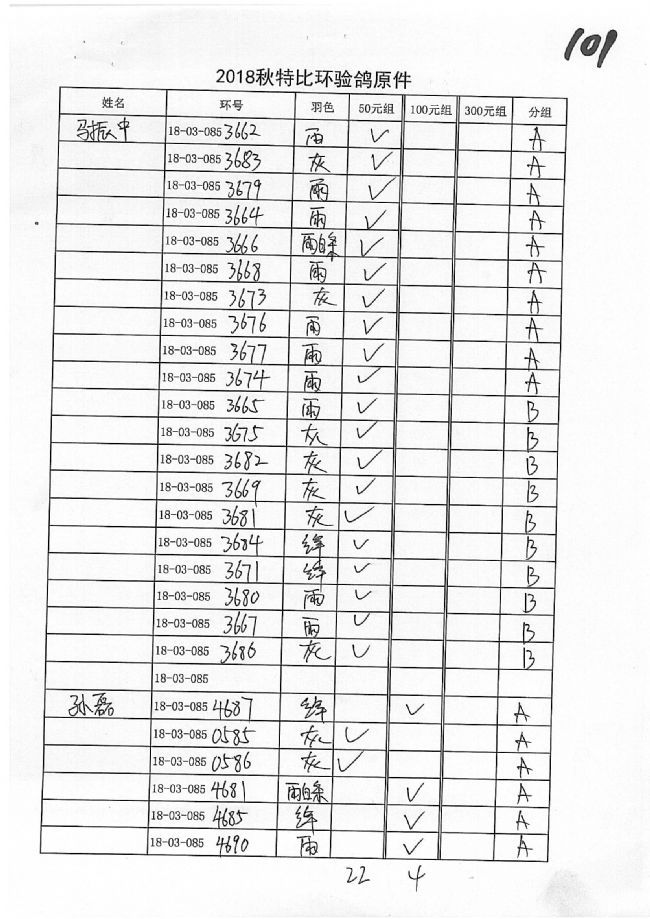 101
2018秋特比环验鸽原件
姓名 环号 羽色 50元组 100元组 300元组 分组
马振中 18-03-085 3662 雨 ✓ A
18-03-085 3683 灰 ✓ A
18-03-085 3679 雨 ✓ A
18-03-085 3664 雨 ✓ A
18-03-085 3666 雨白条 ✓ A
18-03-085 3668 雨 ✓ A
18-03-085 3673 灰 ✓ A
18-03-085 3676 雨 ✓ A
18-03-085 3677 雨 ✓ A
18-03-085 3674 雨 ✓ A
18-03-085 3665 雨 ✓ B
18-03-085 3675 灰 ✓ B
18-03-085 3682 灰 ✓ B
18-03-085 3669 灰 ✓ B
18-03-085 3681 灰 ✓ B
18-03-085 3684 绛 ✓ B
18-03-085 3671 绛 ✓ B
18-03-085 3680 雨 ✓ B
18-03-085 3667 雨 ✓ B
18-03-085 3686 灰 ✓ B
18-03-085
孙磊 18-03-085 4687 绛 ✓ A
18-03-085 0585 灰 ✓ A
18-03-085 0586 灰 ✓ A
18-03-085 4681 雨白条 ✓ A
18-03-085 4685 绛 ✓ A
18-03-085 4690 雨 ✓ A
22 4